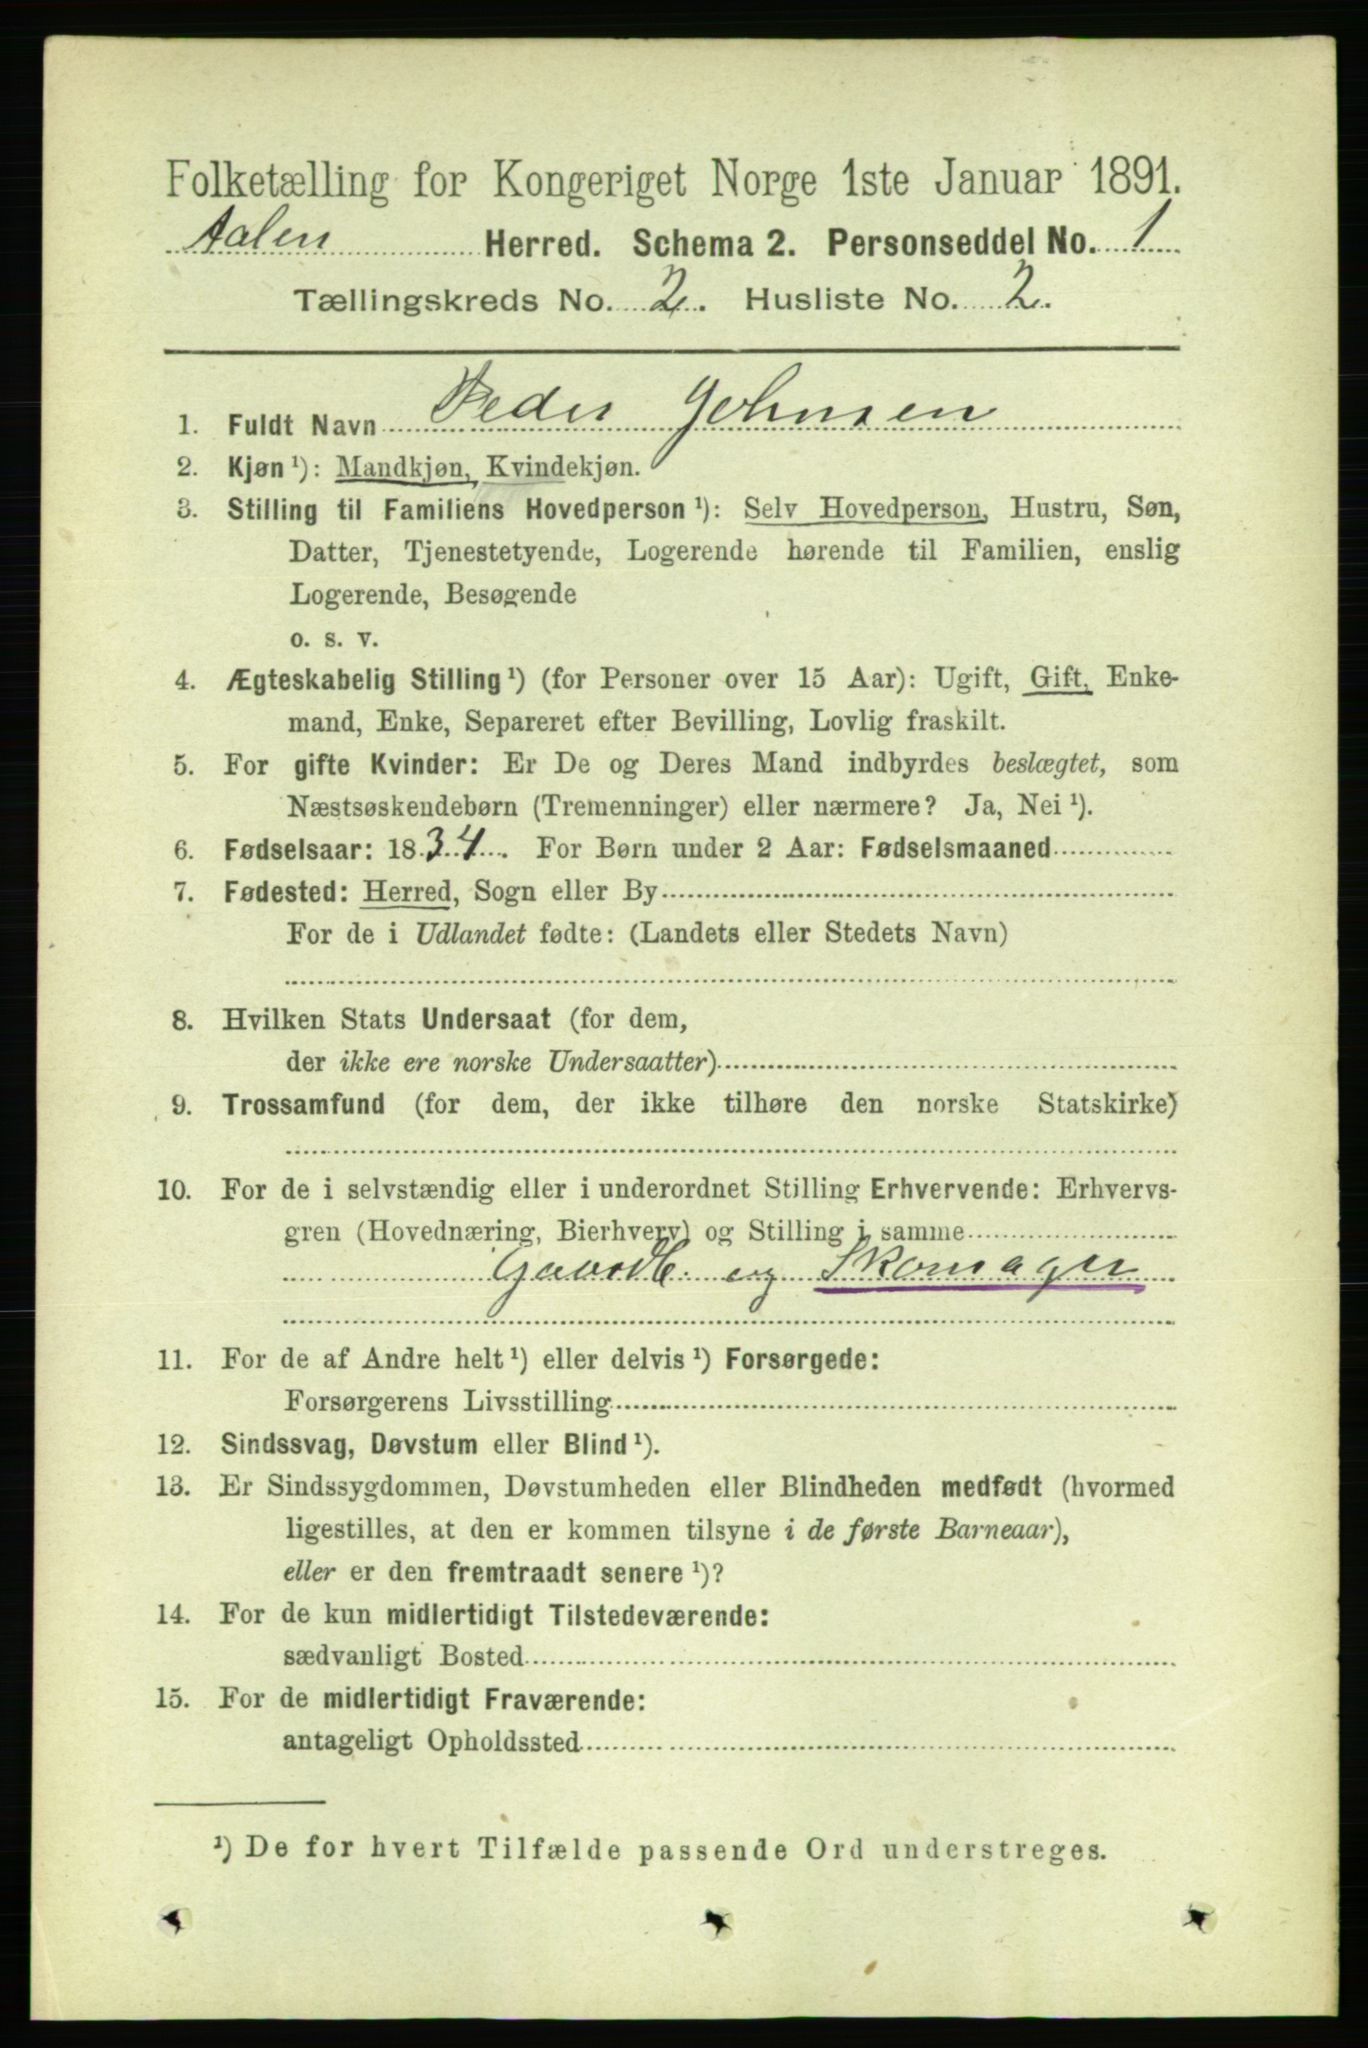 Folketælling for Kongeriget Norge 1ste Januar 1891.
Aalen Herred. Schema 2. Personseddel No. 1
Tællingskreds No. 2. Husliste No. 2.
1. Fuldt Navn Peder Johnsen
2. Kjøn ¹): Mandkjøn, Kvindekjøn.
3. Stilling til Familiens Hovedperson ¹): Selv Hovedperson, Hustru, Søn,
Datter, Tjenestetyende, Logerende hørende til Familien, enslig
Logerende, Besøgende
o. s. v.
4. Ægteskabelig Stilling ¹) (for Personer over 15 Aar): Ugift, Gift, Enke-
mand, Enke, Separeret efter Bevilling, Lovlig fraskilt.
5. For gifte Kvinder: Er De og Deres Mand indbyrdes beslægtet, som
Næstsøskendebørn (Tremenninger) eller nærmere? Ja, Nei ¹).
6. Fødselsaar: 1834. For Børn under 2 Aar: Fødselsmaaned
7. Fødested: Herred, Sogn eller By
For de i Udlandet fødte: (Landets eller Stedets Navn)
8. Hvilken Stats Undersaat (for dem,
der ikke ere norske Undersaatter)
9. Trossamfund (for dem, der ikke tilhøre den norske Statskirke)
10. For de i selvstændig eller i underordnet Stilling Erhvervende: Erhvervs-
gren (Hovednæring, Bierhverv) og Stilling i samme
Gaardb. og Skomager
11. For de af Andre helt ¹) eller delvis ¹) Forsørgede:
Forsørgerens Livsstilling
12. Sindssvag, Døvstum eller Blind ¹).
13. Er Sindssygdommen, Døvstumheden eller Blindheden medfødt (hvormed
ligestilles, at den er kommen tilsyne i de første Barneaar),
eller er den fremtraadt senere ¹)?
14. For de kun midlertidigt Tilstedeværende:
sædvanligt Bosted
15. For de midlertidigt Fraværende:
antageligt Opholdssted
¹) De for hvert Tilfælde passende Ord understreges.